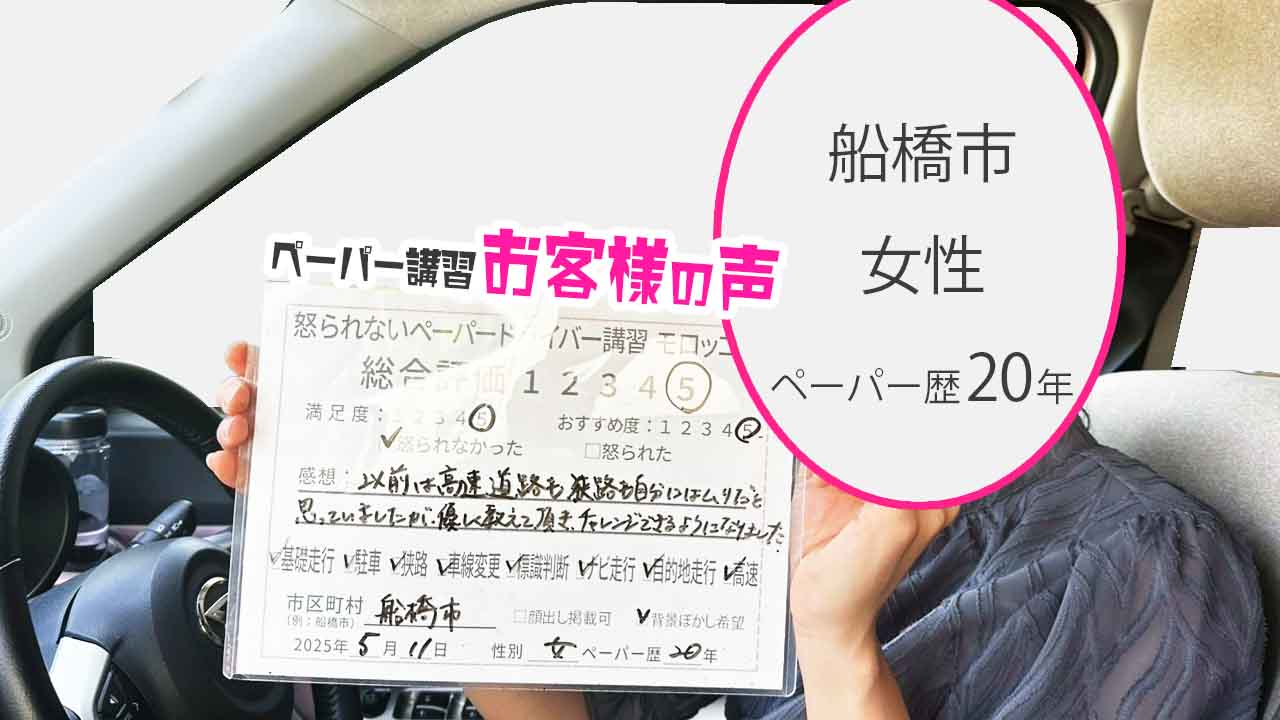 船橋市
女性
ペーパー歴20年
ペーパー講習お客様の声
怒られないペーパードライバー講習 モロッコ
総合評価 1 2 3 4 5
満足度：1 2 3 4 5 おすすめ度：1 2 3 4 5
✓怒られなかった □怒られた
感想：以前は高速道路も狭路も自分にはムリだと
思っていましたが、優しく教えて頂き、チャレンジできるようになりました
✓基礎走行 ✓駐車 ✓狭路 ✓車線変更 ✓標識判断 ✓ナビ走行 ✓目的地走行 ✓高速
市区町村 船橋市 □顔出し掲載可 ✓背景ぼかし希望
(例：船橋市)
2025年 5月 11日 性別 女 ペーパー歴 20年